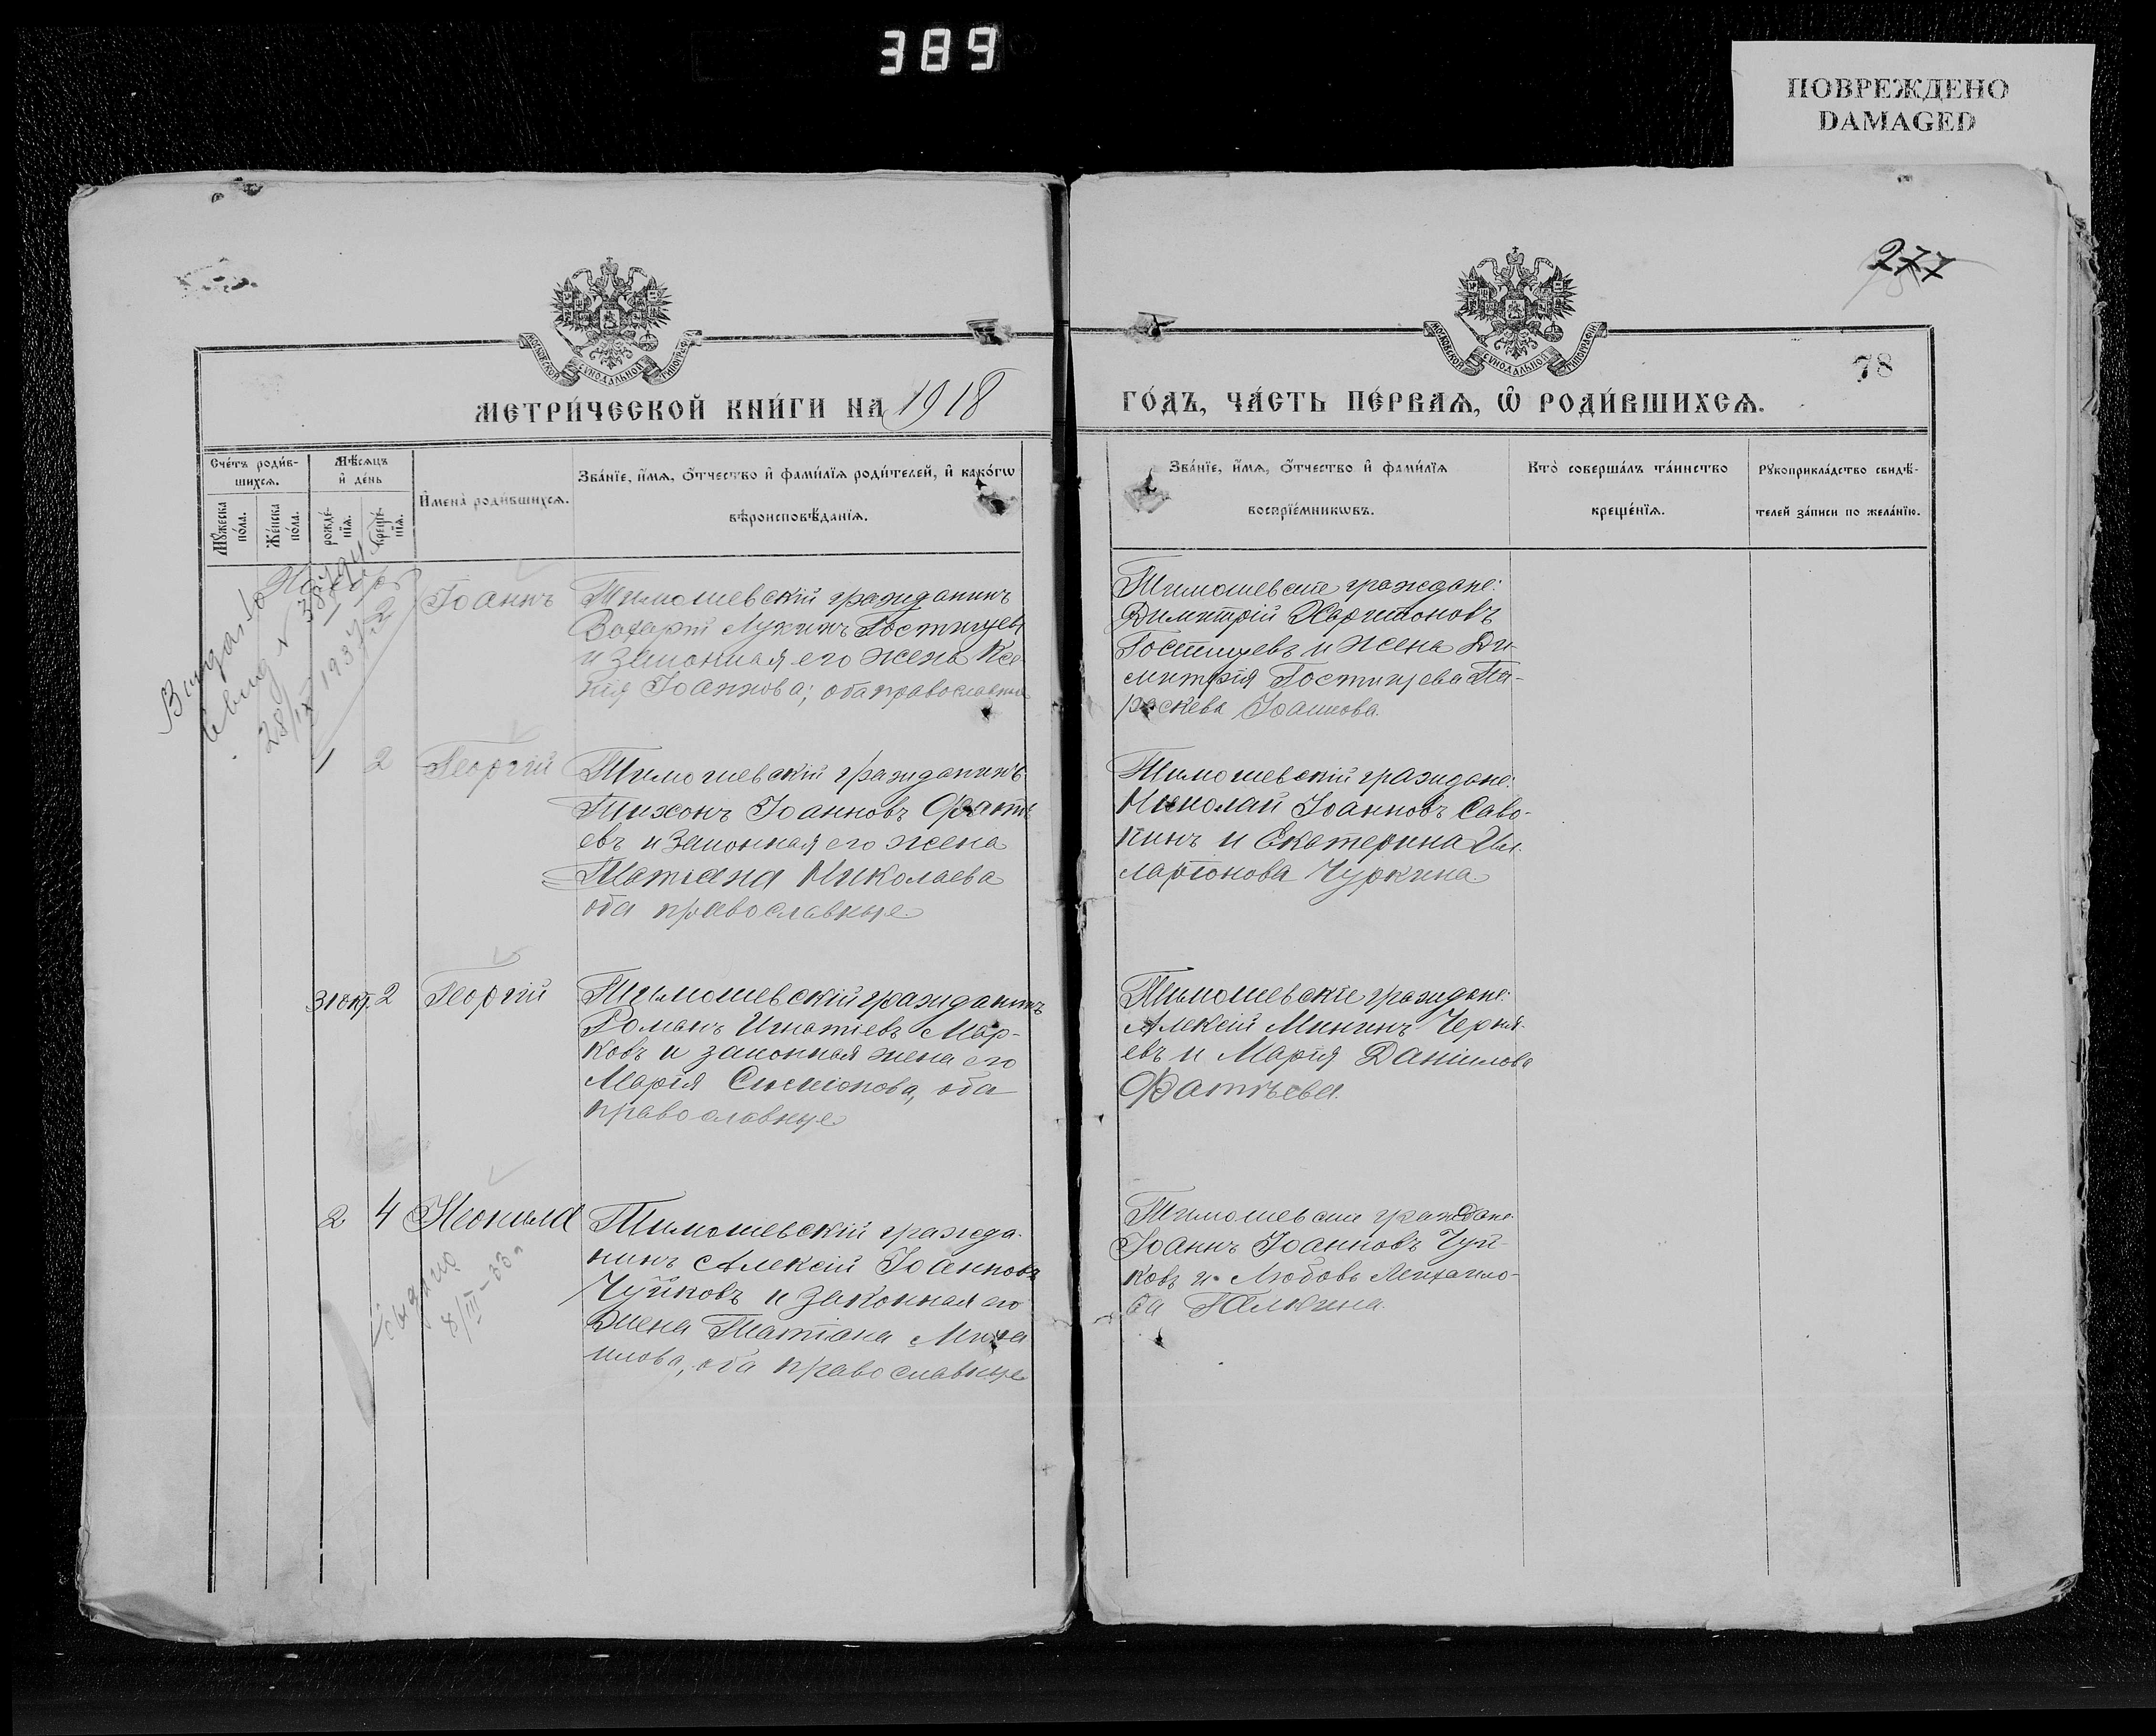 389
ПОВРЕЖДЕНО
DAMAGED
277
78
МОСКОВСКОЙ СѴНОДАЛЬНОЙ ТИПОГРАФІИ
МОСКОВСКОЙ СѴНОДАЛЬНОЙ ТИПОГРАФІИ
МЕТРИ́ЧЕСКОЙ КНИ́ГИ НА 1918
ГО́ДЪ, ЧА́СТЬ ПЕ́РВАѦ, Ѡ РОДИ́ВШИХСѦ.
Сче́тъ роди́в-
шихсѧ.
Мꙋ́жеска
по́ла.
Же́нска
по́ла.
Мѣ́сѧцъ
и҆ де́нь
рожде́-
нїѧ.
креще́-
нїѧ.
И҆мена̀ роди́вшихсѧ.
Зва́нїе, и҆́мѧ, ѻ҆́тчество и҆ фами́лїѧ роди́телей, и҆ како́гѡ
вѣроисповѣ́данїѧ.
Зва́нїе, и҆́мѧ, ѻ҆́тчество и҆ фами́лїѧ
воспрїе́мникѡвъ.
Кто̀ соверша́лъ та́инство
креще́нїѧ.
Рꙋкоприкла́дство свидѣ́-
телей за́писи по жела́нїю.
Ноябрь
Выдано
28/IX 1937
2
Іоаннъ
Тимошевскій гражданинъ
Захарій Лукинъ Гостищевъ
и законная его жена Ксе-
нія Іоаннова; оба православные
Тимошевскіе граждане:
Димитрій Харитоновъ
Гостищевъ и жена Ди-
митрія Гостищева Па-
раскева Іоаннова.
1 2 Георгій
Тимошевскій гражданинъ
Тихонъ Іоанновъ Фатѣ
евъ и законная его жена
Татіана Николаева
оба православные
Тимошевскій граждане:
Николай Іоанновъ Саво-
кинъ и Екатерина Ил-
ларіонова Чуркина.
31 окт. 2 Георгій
Тимошевскій гражданинъ
Романъ Игнатіевъ Мар-
ковъ и законная жена его
Марія Симеонова, оба
православные
Тимошевскіе граждане:
Алексій Мининъ Черня-
евъ и Марія Даніилова
Фатѣева.
2 4 Неонила
Выдано
8/III-33
Тимошевскій гражда-
нинъ Алексій Іоанновъ
Чуйковъ и законная его
жена Татіана Миха
илова, оба православные
Тимошевскіе граждане
Іоаннъ Іоанновъ Чуй-
ковъ и Любовь Михаило-
ва Галкина.